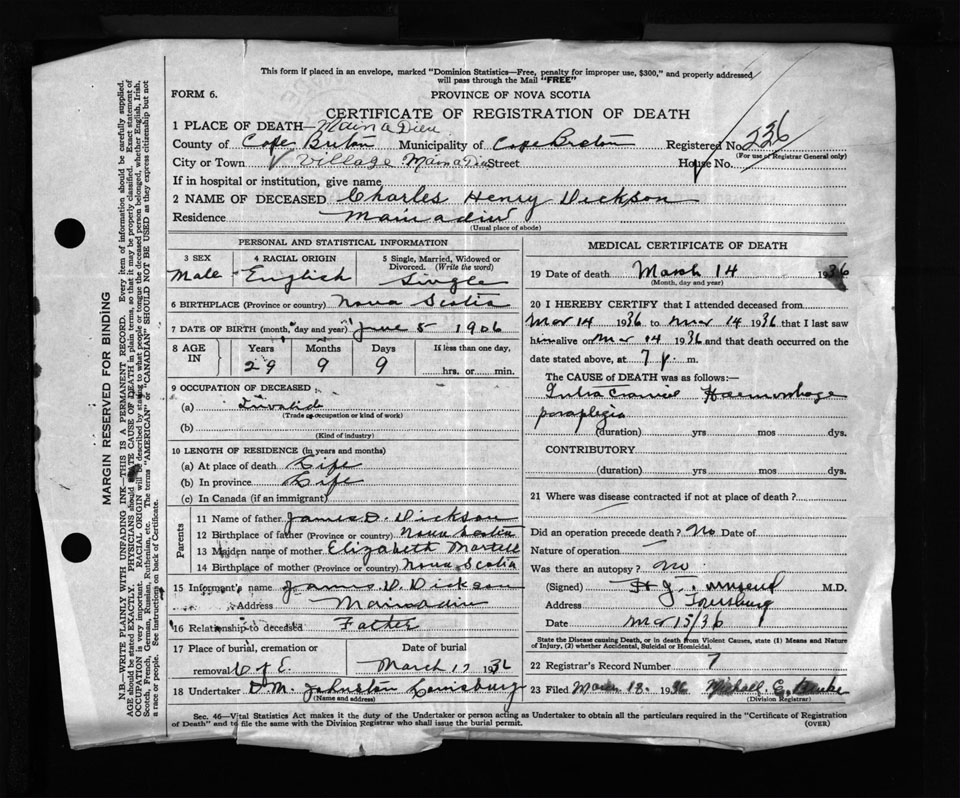 This form if placed in an envelope, marked "Dominion Statistics—Free, penalty for improper use, $300," and properly addressed
will pass through the Mail "FREE"
FORM 6.
PROVINCE OF NOVA SCOTIA
CERTIFICATE OF REGISTRATION OF DEATH
1 PLACE OF DEATH— Main a Dieu
County of Cape Breton Municipality of Cape Breton Registered No. 236
(For use of Registrar General only)
City or Town Village Main a Dieu Street House No.
If in hospital or institution, give name
2 NAME OF DECEASED Charles Henry Dickson
Residence Mainadieu
(Usual place of abode)
PERSONAL AND STATISTICAL INFORMATION
3 SEX 4 RACIAL ORIGIN 5 Single, Married, Widowed or
Divorced. (Write the word)
Male English Single
6 BIRTHPLACE (Province or country) Nova Scotia
7 DATE OF BIRTH (month, day and year) June 5 1906
8 AGE IN Years Months Days If less than one day,
29 9 9 hrs. or min.
9 OCCUPATION OF DECEASED
(a) Invalide
(Trade or occupation or kind of work)
(b)
(Kind of industry)
10 LENGTH OF RESIDENCE (in years and months)
(a) At place of death Life
(b) In province Life
(c) In Canada (if an immigrant)
Parents
11 Name of father James D. Dickson
12 Birthplace of father (Province or country) Nova Scotia
13 Maiden name of mother Elizabeth Martell
14 Birthplace of mother (Province or country) Nova Scotia
15 Informant's name James D. Dickson
Address Mainadieu
16 Relationship to deceased Father
17 Place of burial, cremation or Date of burial
removal C of E. March 17 1936
18 Undertaker D. M. Johnston Louisburg
(Name and address)
MEDICAL CERTIFICATE OF DEATH
19 Date of death March 14 1936
(Month, day and year)
20 I HEREBY CERTIFY that I attended deceased from
Mar 14 1936 to Mar 14 1936 that I last saw
him alive on Mar 14 1936 and that death occurred on the
date stated above, at 7 p. m.
The CAUSE OF DEATH was as follows:—
Intra Cranial Haemorrhage
paraplegia
(duration) yrs mos dys.
CONTRIBUTORY
(duration) yrs mos dys.
21 Where was disease contracted if not at place of death?
Did an operation precede death? No Date of
Nature of operation —
Was there an autopsy? No.
(Signed) M.D.
Address Louisburg
Date Mar 15/36
State the Disease causing Death, or in death from Violent Causes, state (1) Means and Nature
of Injury, (2) whether Accidental, Suicidal or Homicidal.
22 Registrar's Record Number 7
23 Filed Mar. 18. 1936 Michael E. Burke
(Division Registrar)
Sec. 46—Vital Statistics Act makes it the duty of the Undertaker or person acting as Undertaker to obtain all the particulars required in the "Certificate of Registration
of Death" and to file the same with the Division Registrar who shall issue the burial permit. (OVER)
MARGIN RESERVED FOR BINDING
N.B.—WRITE PLAINLY WITH UNFADING INK—THIS IS A PERMANENT RECORD. Every item of information should be carefully supplied.
AGE should be stated EXACTLY. PHYSICIANS should STATE CAUSE OF DEATH in plain terms, so that it may be properly classified. Exact statement of
OCCUPATION is very important. RACIAL ORIGIN will be described by stating to what people or tongue the deceased person belonged, whether English, Irish,
Scotch, French, German, Russian, Ruthenian, etc. The terms "AMERICAN" or "CANADIAN" SHOULD NOT BE USED as they express citizenship but not
a race or people. See instructions on back of Certificate.